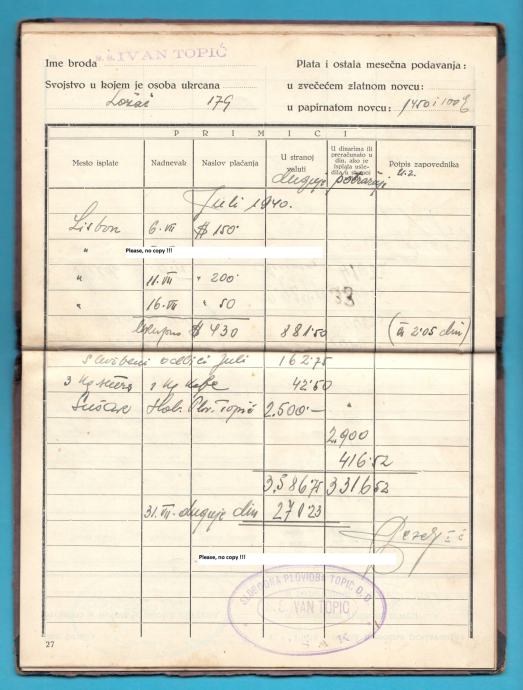 Ime broda s.s. IVAN TOPIĆ
Plata i ostala mesečna podavanja:
Svojstvo u kojem je osoba ukrcana
u zvečećem zlatnom novcu:
Ložač 179
u papirnatom novcu: 1450 i 100
PRIMICI
Mesto isplate Nadnevak Naslov plaćanja U stranoj valuti U dinarima ili preračunato u din. ako je isplata usledila u stranoj Potpis zapovednika
duguje potražuje
Juli 1940.
Lisbon 6. VII $ 150
"
Please, no copy !!!
" 11. VII " 200
" 16. VII " 50
Ukupno $ 430 881·50 (à 2·05 din)
službeni odbici juli 162·75
3 kg 2 kg kafe 42·50
Sušak Plov. Topić 2.500·— "
2.900
416·52
3.586·75 3316·52
31. VII. duguje din 270·23
Please, no copy !!!
SLOBODNA PLOVIDBA TOPIĆ D. D.
S.S. IVAN TOPIĆ
27